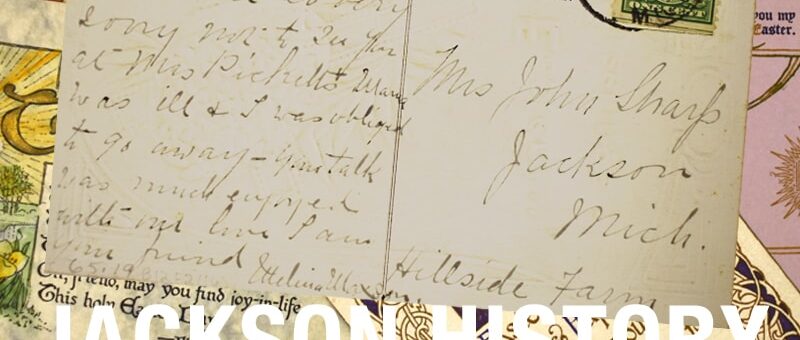 sorry not to see you
at Mrs Picketts Mama
was ill & I was obliged
to go away - Your talk
was much enjoyed
with our love I am
your friend
Mrs John Sharp
Jackson
Mich.
Hillside Farm
M
you my
Easter.
Oh, friend, may you find joy-in-life
This holy Easter Day
JACKSON HISTORY